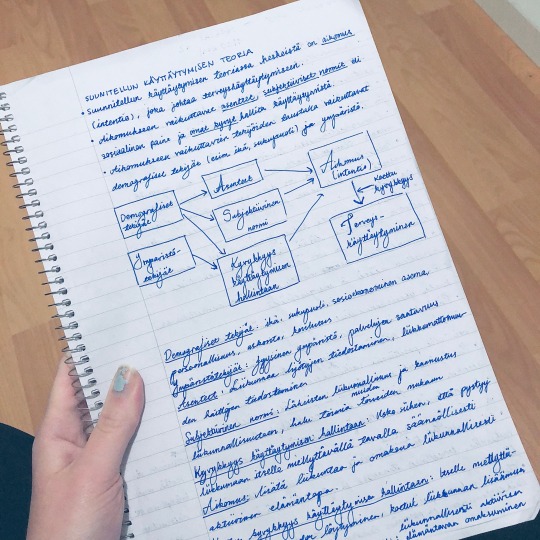 SUUNNITELLUN KÄYTTÄYTYMISEN TEORIA
• Suunnitellun käyttäytymisen teoriassa keskeistä on aikomus
(intentio), joka johtaa terveyskäyttäytymiseen.
• Aikomukseen vaikuttavat asenteet, subjektiiviset normit eli
sosiaalinen paine ja omat kyvyt hallita käyttäytymistä.
• Aikomukseen vaikuttavien tekijöiden taustalla vaikuttavat
demografiset tekijät (esim. ikä, sukupuoli) ja ympäristö.
Demografiset
tekijät
Ympäristö-
tekijät
Asenteet
Subjektiivinen
normi
Kyvykkyys
käyttäytymisen
hallintaan
Aikomus
(intentio)
Koettu
kyvykkyys
Terveys-
käyttäytyminen
Demografiset tekijät: ikä, sukupuoli, sosioekonominen asema,
persoonallisuus, uskonto, koulutus
Ympäristötekijät: fyysinen ympäristö, palvelujen saatavuus
Asenteet: Liikunnan hyötyjen tiedostaminen, liikkumattomuu-
den haittojen tiedostaminen
Subjektiivinen normi: Läheisten liikunnallisuus ja kannustus
liikunnallisuuteen, halu toimia muiden toiveiden mukaan
Kyvykkyys käyttäytymisen hallintaan: Usko siihen, että pystyy
liikkumaan itselle miellyttävällä tavalla säännöllisesti
Aikomus: lisätä liikuntaa ja omaksua liikunnallisesti
aktiivinen elämäntapa.
kyvykkyys käyttäytymisen hallintaan: Itselle miellyttä-
löytyminen, koetut liikunnan lisäämisen
liikunnallisesti aktiivisen
elämäntavan omaksuminen